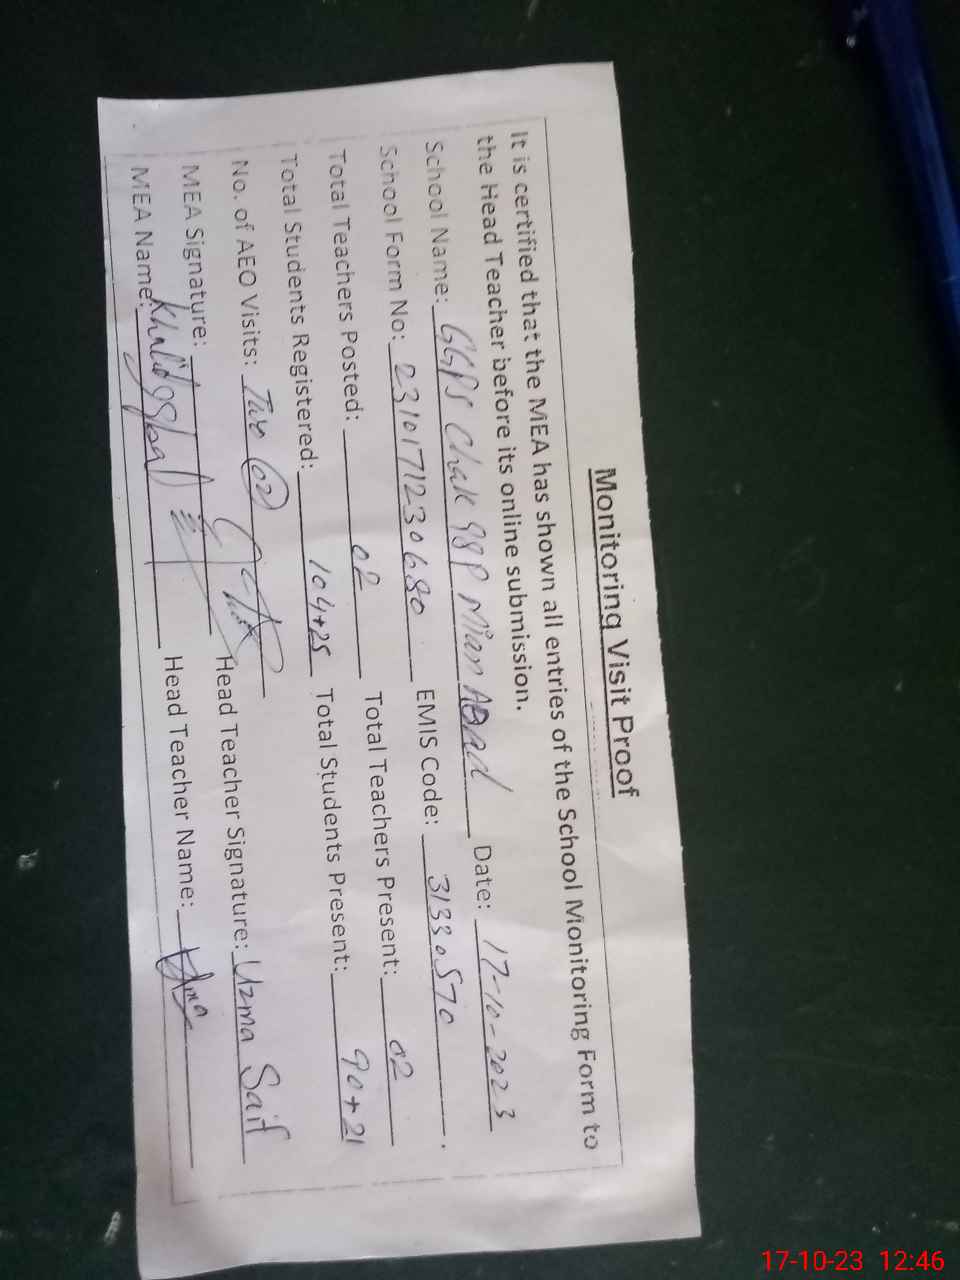 Monitoring Visit Proof
It is certified that the MEA has shown all entries of the School Monitoring Form to
the Head Teacher before its online submission.
School Name: GGPS Chak 98 P Mian Abad Date: 17-10-2023
School Form No: 231017123 0680 EMIS Code: 31330570.
Total Teachers Posted: 02 Total Teachers Present: 02
Total Students Registered: 104+25 Total Students Present: 90+21
No. of AEO Visits: Two 02
MEA Signature: Head Teacher Signature: Uzma Saif
MEA Name: Khalid Iqbal Head Teacher Name: Uzma
17-10-23 12:46